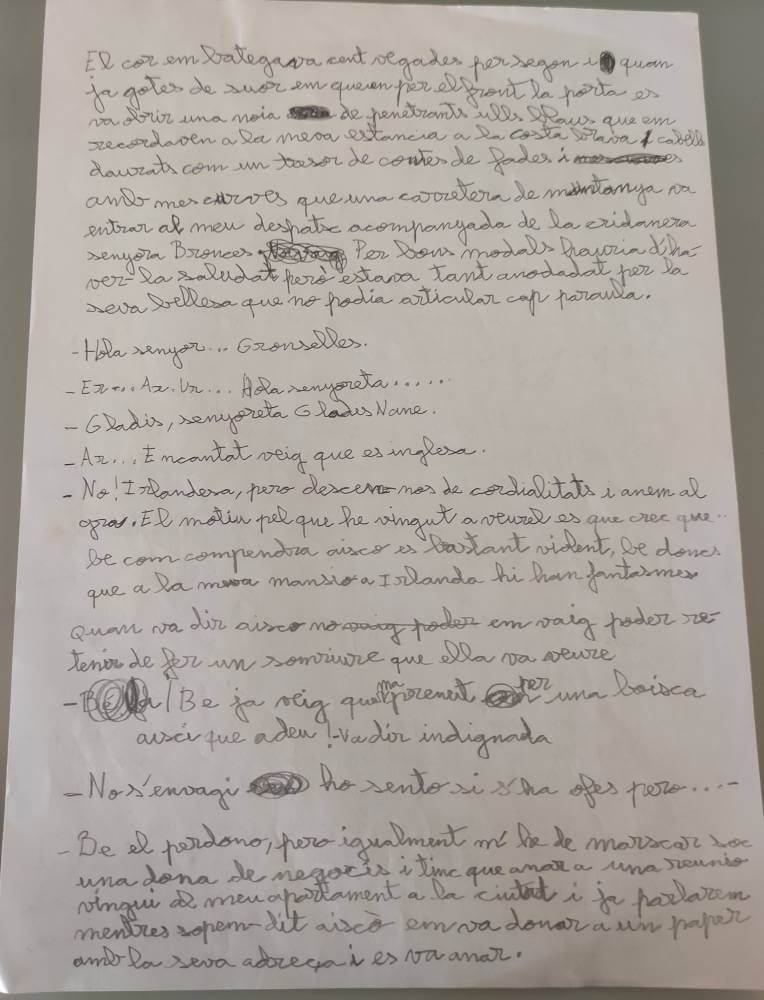 El cor em bategava cent vegades per segon i quan
ja gotes de suor em queien per el front la porta es
va obrir una noia de penetrants ulls blaus que em
recordaven a la meva estancia a la costa brava, cabells
daurats com un tresor de contes de fades i
amb mes curves que una carretera de muntanya va
entrar al meu despatx acompanyada de la cridanera
senyora Bronces. Per bons modals hauria d'ha-
ver-la saludat però estava tant anodadat per la
seva bellesa que no podia articular cap paraula.
- Hola senyor... Gronselles.
- Er... Ar. Ur... Hola senyoreta.....
- Gladis, senyoreta Gladis Nane.
- Ar... Encantat veig que es inglesa.
- No! Irlandesa, pero descem-nos de cordialitats i anem al
gra. El motiu pel que he vingut a veurel es que crec que..
be com compendra aisco es bastant violent, be doncs
que a la meva mansio a Irlanda hi han fantasmes.
Quan va dir aisco no vaig poder em vaig poder re-
tenir de fer un somriure que ella va veure
- Be ja veig que ma prenent per una boisca
aisci que adeu! -va dir indignada
- No s'envagi ho sento si s'ha ofes pero....-
- Be el perdono, pero igualment m' he de marscar soc
una dona de negocis i tinc que anar a una reunio
vingui al meu apartament a la ciutat i ja parlarem
mentres sopem- dit aiscò em va donar a un paper
amb la seva adreça i es va anar.